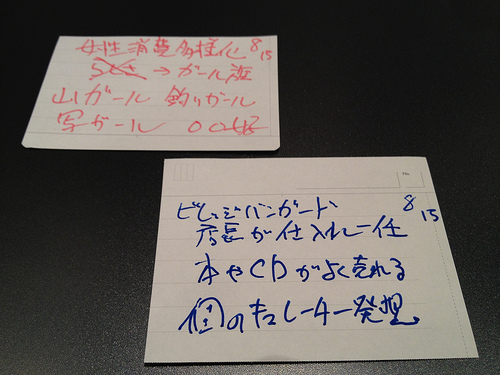 女性消費多様化 8/15
→ ガール派
山ガール 釣りガール
写ガール 〇〇女子
No.
ビレッジバンガード 8/15
店長が仕入れ一任
本やCDがよく売れる
個のキュレーター発想